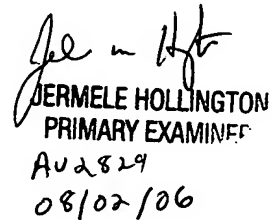 JERMELE HOLLINGTON
PRIMARY EXAMINER
AU2829
08/02/06